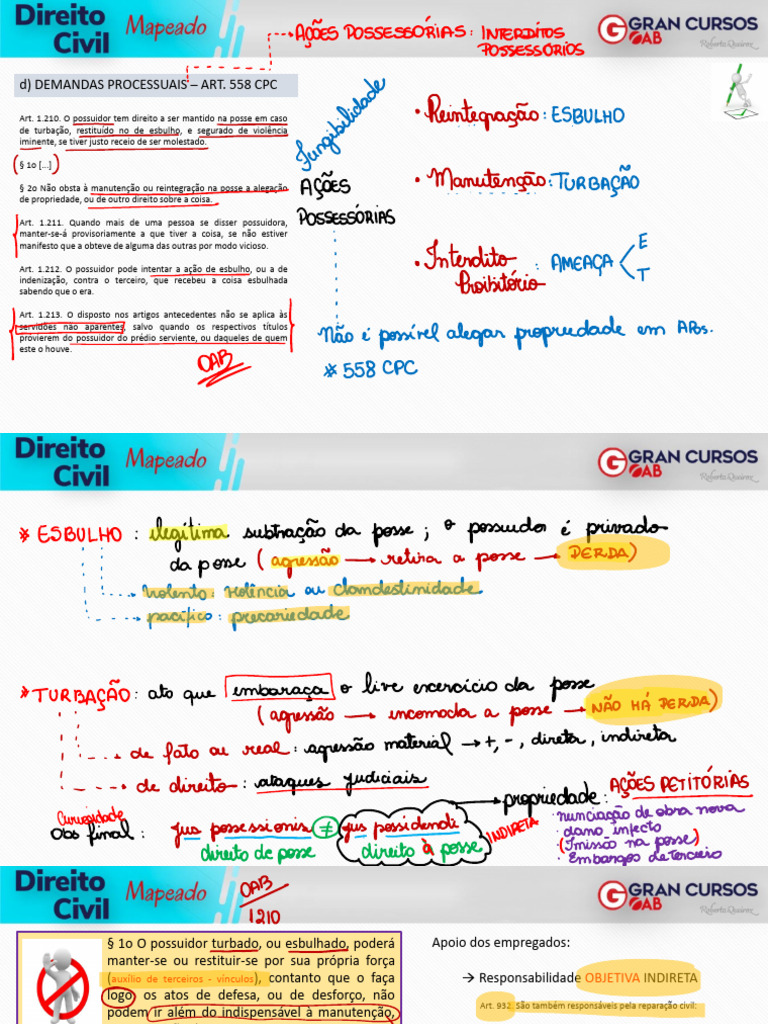 Direito
Civil Mapeado
AÇÕES POSSESSÓRIAS: INTERDITOS
POSSESSÓRIOS
GRAN CURSOS
OAB
Roberta Queiroz
d) DEMANDAS PROCESSUAIS – ART. 558 CPC
Art. 1.210. O possuidor tem direito a ser mantido na posse em caso
de turbação, restituído no de esbulho, e segurado de violência
iminente, se tiver justo receio de ser molestado.
§ 1o [...]
§ 2o Não obsta à manutenção ou reintegração na posse a alegação
de propriedade, ou de outro direito sobre a coisa.
Art. 1.211. Quando mais de uma pessoa se disser possuidora,
manter-se-á provisoriamente a que tiver a coisa, se não estiver
manifesto que a obteve de alguma das outras por modo vicioso.
Art. 1.212. O possuidor pode intentar a ação de esbulho, ou a de
indenização, contra o terceiro, que recebeu a coisa esbulhada
sabendo que o era.
Art. 1.213. O disposto nos artigos antecedentes não se aplica às
servidões não aparentes, salvo quando os respectivos títulos
provierem do possuidor do prédio serviente, ou daqueles de quem
este o houve.
OAB
Fungibilidade
AÇÕES
POSSESSÓRIAS
• Reintegração: ESBULHO
• Manutenção: TURBAÇÃO
• Interdito
Proibitório: AMEAÇA < E
T
Não é possível alegar propriedade em APos.
* 558 CPC
Direito
Civil Mapeado
GRAN CURSOS
OAB
Roberta Queiroz
* ESBULHO: ilegítima subtração da posse; o possuidor é privado
da posse (agressão → retira a posse → PERDA)
violento: violência ou clandestinidade
pacífico: precariedade
* TURBAÇÃO: ato que embaraça o live exercício da posse
(agressão → incomoda a posse → NÃO HÁ PERDA)
de fato ou real: agressão material → +, -, direta, indireta
de direito: ataques judiciais
Curiosidade
Obs final: jus possessionis ≠ jus possidendi: INDIRETA
direito de posse direito à posse
propriedade: AÇÕES PETITÓRIAS
• nunciação de obra nova
• dano infecto
(Imissão na posse)
• Embargos de terceiro
Direito
Civil Mapeado
OAB
1210
GRAN CURSOS
OAB
Roberta Queiroz
§ 1o O possuidor turbado, ou esbulhado, poderá
manter-se ou restituir-se por sua própria força
(auxílio de terceiros - vínculos), contanto que o faça
logo; os atos de defesa, ou de desforço, não
podem ir além do indispensável à manutenção,
Apoio dos empregados:
→ Responsabilidade OBJETIVA INDIRETA
Art. 932. São também responsáveis pela reparação civil: